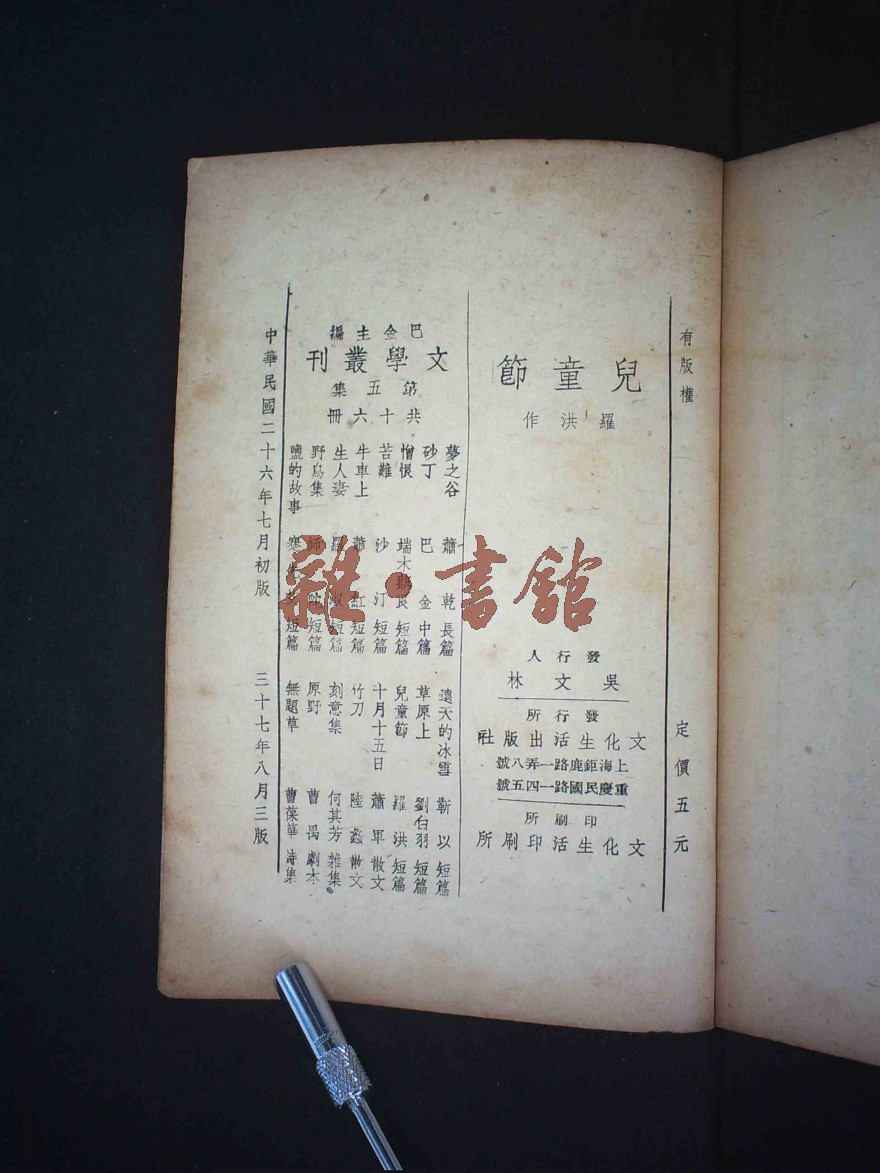 有版權
定價五元
兒童節
羅洪作
發行人
吳文林
發行所
文化生活出版社
上海鉅鹿路一弄八號
重慶民國路一四五號
印刷所
文化生活印刷所
巴金主編
文學叢刊
第五集
共十六冊
夢之谷 蕭乾 長篇
砂丁 巴金 中篇
憎恨 端木蕻良 短篇
苦難 沙汀 短篇
牛車上 蕭紅 短篇
生人妻 羅淑 短篇
野鳥集 師陀 短篇
鹽的故事 蹇先艾 短篇
遠天的冰雪 靳以 短篇
草原上 劉白羽 短篇
兒童節 羅洪 短篇
十月十五日 蕭軍 散文
竹刀 陸蠡 散文
刻意集 何其芳 雜集
原野 曹禺 劇本
無題草 曹葆華 詩集
中華民國二十六年七月初版
三十七年八月三版
雜·書館